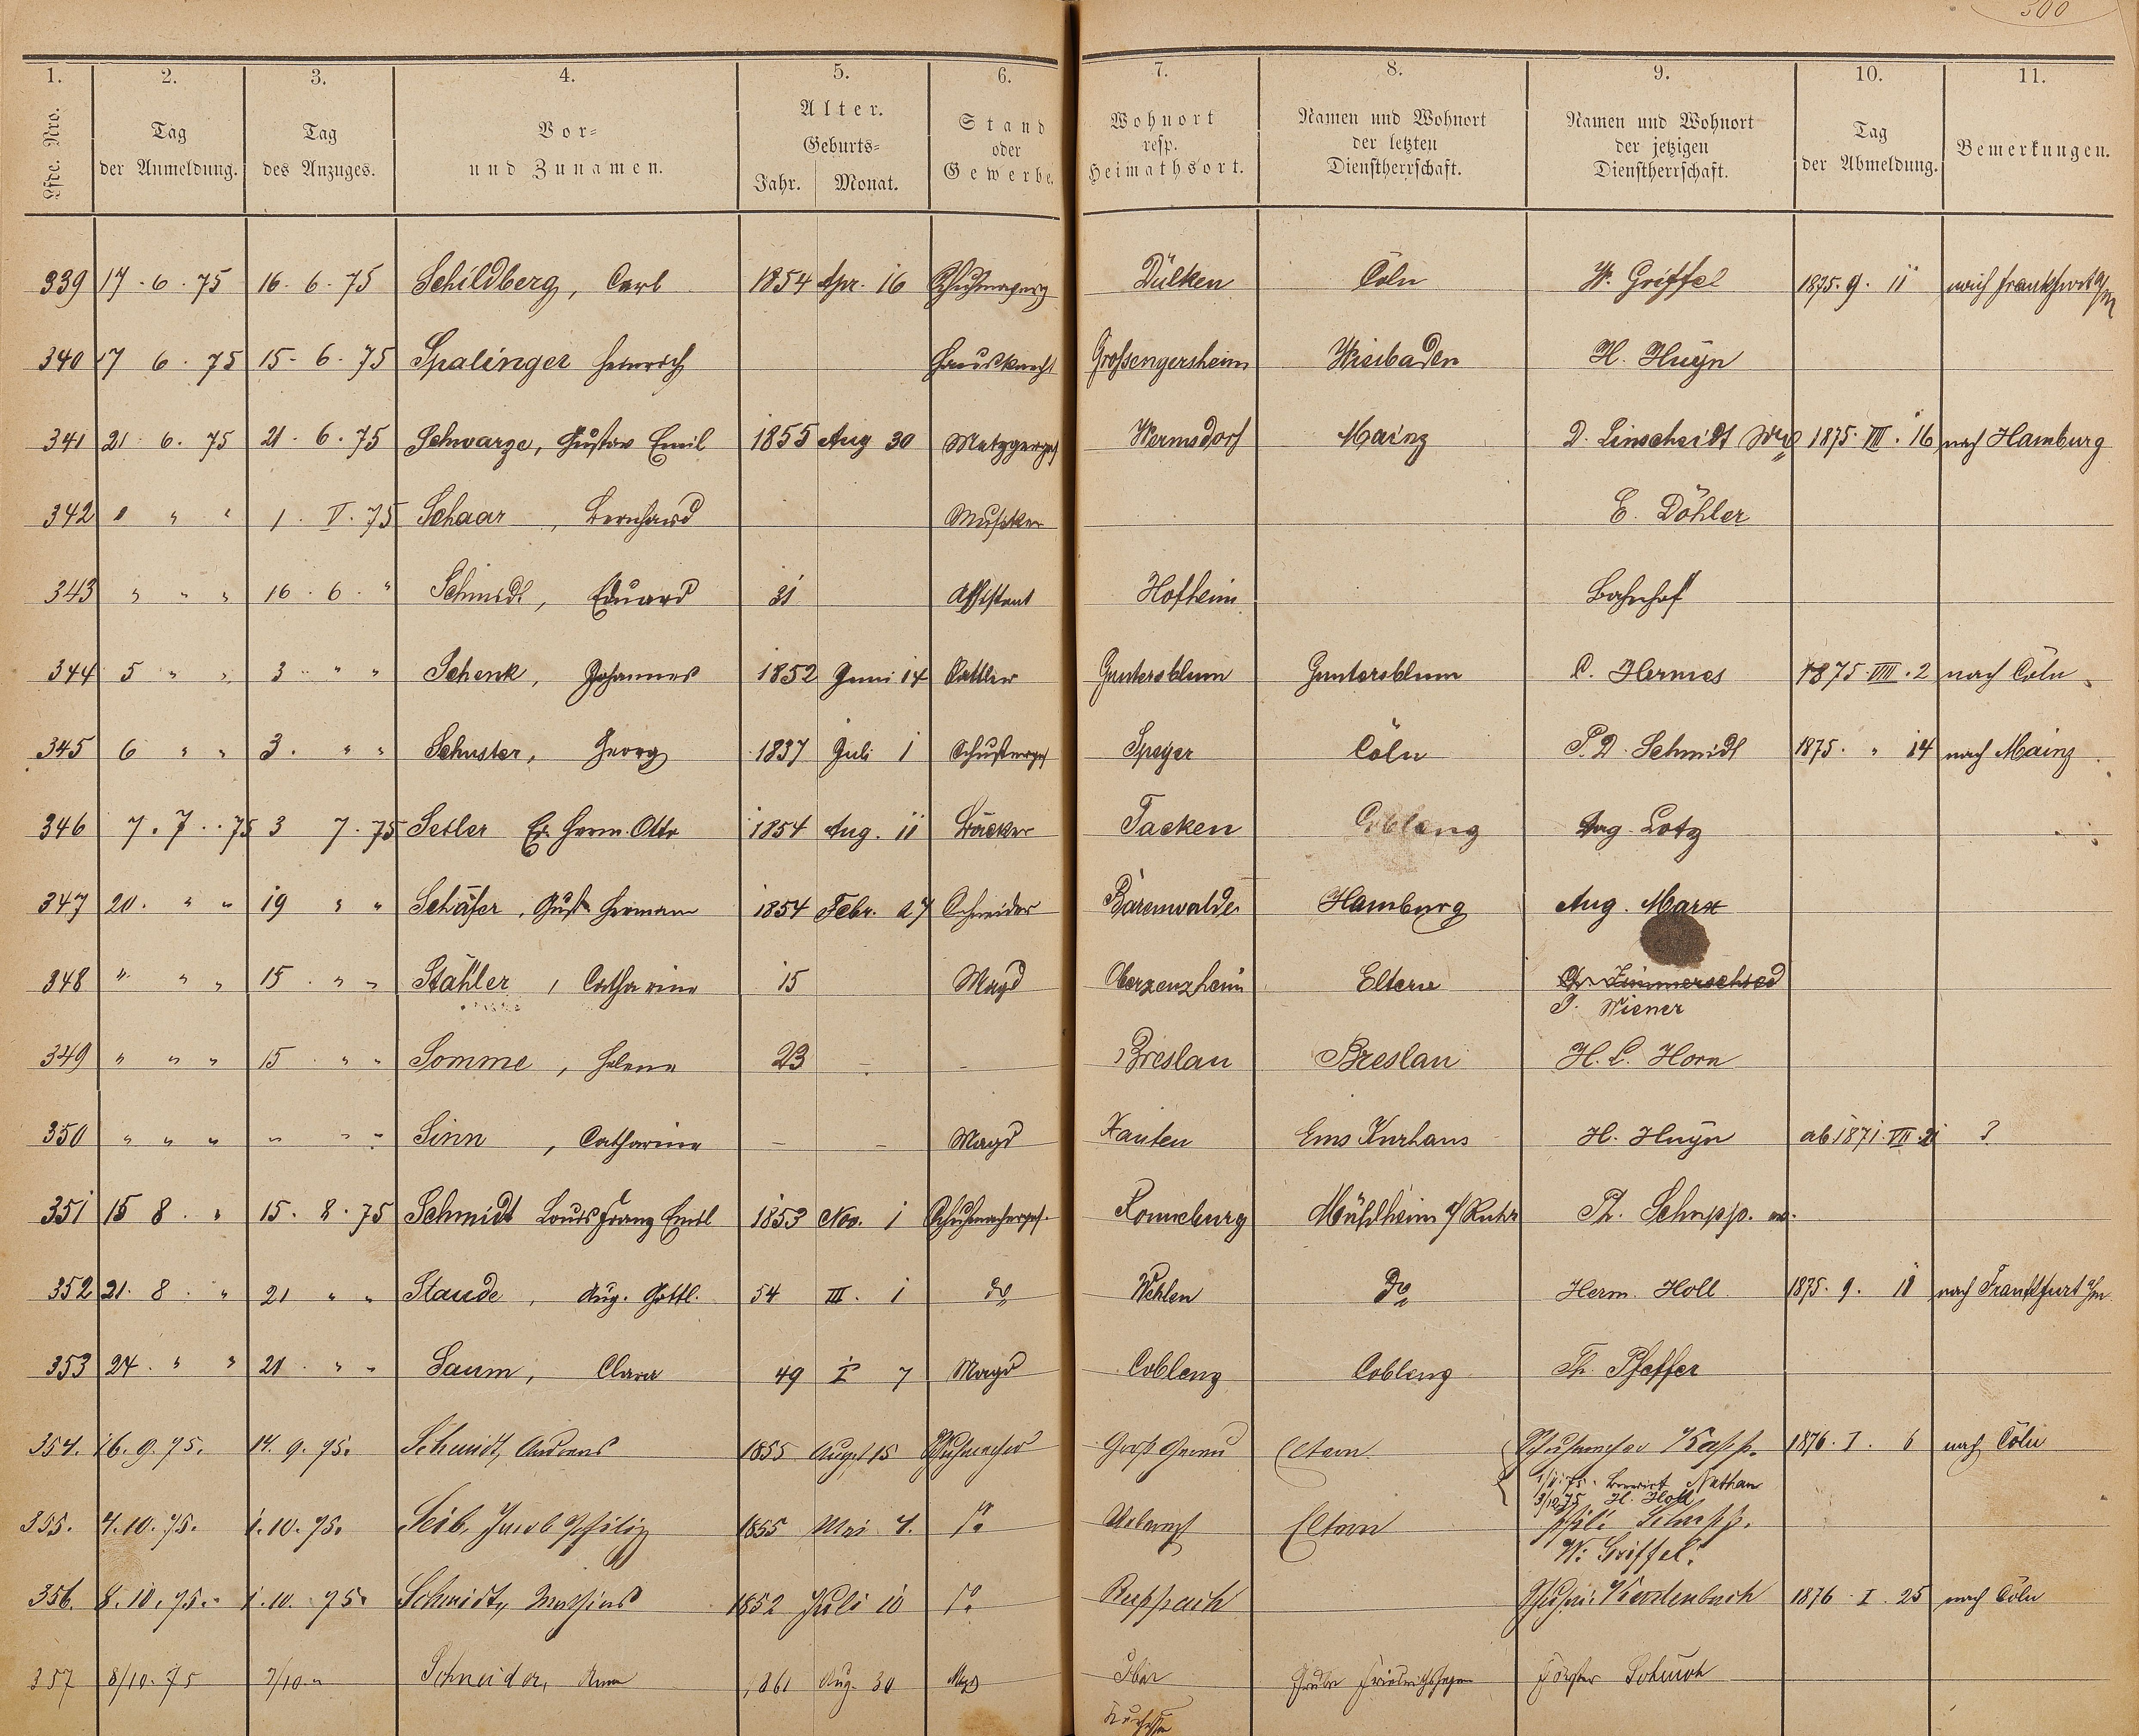 300
1. 2. 3. 4. 5. 6. 7. 8. 9. 10. 11.
Lfde. Nro. Tag der Anmeldung. Tag des Anzuges. Vor- und Zunamen. Alter. Geburts- Jahr. Monat. Stand oder Gewerbe. Wohnort resp. Heimathsort. Namen und Wohnort der letzten Dienstherrschaft. Namen und Wohnort der jetzigen Dienstherrschaft. Tag der Abmeldung. Bemerkungen.
339 17. 6. 75 16. 6. 75 Schildberg, Carl 1854 Apr. 16 Dülken Cöln W. Griffel 1875. 9. 11 nach Frankfurt a/M
340 17 6. 75 15. 6. 75 Spalinger Heinrich Hausknecht Grossengersheim Wiesbaden H. Huyn
341 21. 6. 75 21. 6. 75 Schwarze, Gustav Emil 1855 Aug 30 Metzgerges Wermsdorf Mainz D. Linscheidt Ww 1875. VIII. 16 nach Hamburg
342 " " " 1. V. 75 Schaar, Bernhard Musiker E. Döhler
343 " " " 16. 6. " Schmidt, Eduard 31 Assistent Hofheim Bahnhof
344 5 " " 3 " " Schenk, Johannes 1852 Juni 14 Sattler Guntersblum Guntersblum C. Hermes 1875. VIII. 2 nach Cöln
345 6 " " 3. " " Schuster, Georg 1837 Juli 1 Schusterges Speyer Cöln P. D. Schmidt 1875. " 14 nach Mainz
346 7. 7. 75 3 7. 75 Herm. Otto 1854 Aug. 11 Bäcker Tacken Coblenz Aug. Lotz
347 20. " " 19 " " Schäfer, Gust. Hermann 1854 Febr. 27 Schneider Bärenwalde Hamburg Aug. Marx
348 " " " 15. " " Stähler, Catharina 15 Magd Oberzeuzheim Eltern Chr. Zimmerschied
J. Wiener
349 " " " 15. " " Somme, Helena 23 - - Breslau Breslau H. L. Horn
350 " " " " " " Sinn, Catharina - - Magd Xanten Ems Kurhaus H. Huyn ab 1871. VII. 21 ?
351 15 8. " 15. 8. 75 Schmidt Louis Franz Emil 1853 Nov. 1 Schuhmacherges. Ronneburg Mühlheim a/ Ruhr Ph. Schupp.
352 21. 8. " 21 " " Staude, Aug. Gottl. 54 III. 1 do Wehlen do Herm. Holl 1875. 9. 11 nach Frankfurt a/m
353 24. " " 21. " " Saum, Clara 49 I 7 Magd Coblenz Coblenz Th. Pfeffer
354. 16. 9. 75. 14. 9. 75. Schmidt, Andreas 1855 August 15 Schuhmacher Groß Gerau Eltern Schuhmacher Kapp. 1876. I. 6 nach Cöln
Nathan
3/10 75 H. Holl
355. 4. 10. 75. 1. 10. 75. Seib, Jacob Philip 1855 Mai 4. do Eltern Phil. Schupp.
W. Griffel.
356. 8. 10. 75. 1. 10. 75. Schmidt, Mathias 1852 Juli 10 do Ruppach 1876. I. 25 nach Cöln
357 8/10. 75 7/10 " Schneider, Anna 1861 Aug. 30 Magd Ober Grube Friedrichssegen Förster Schuch